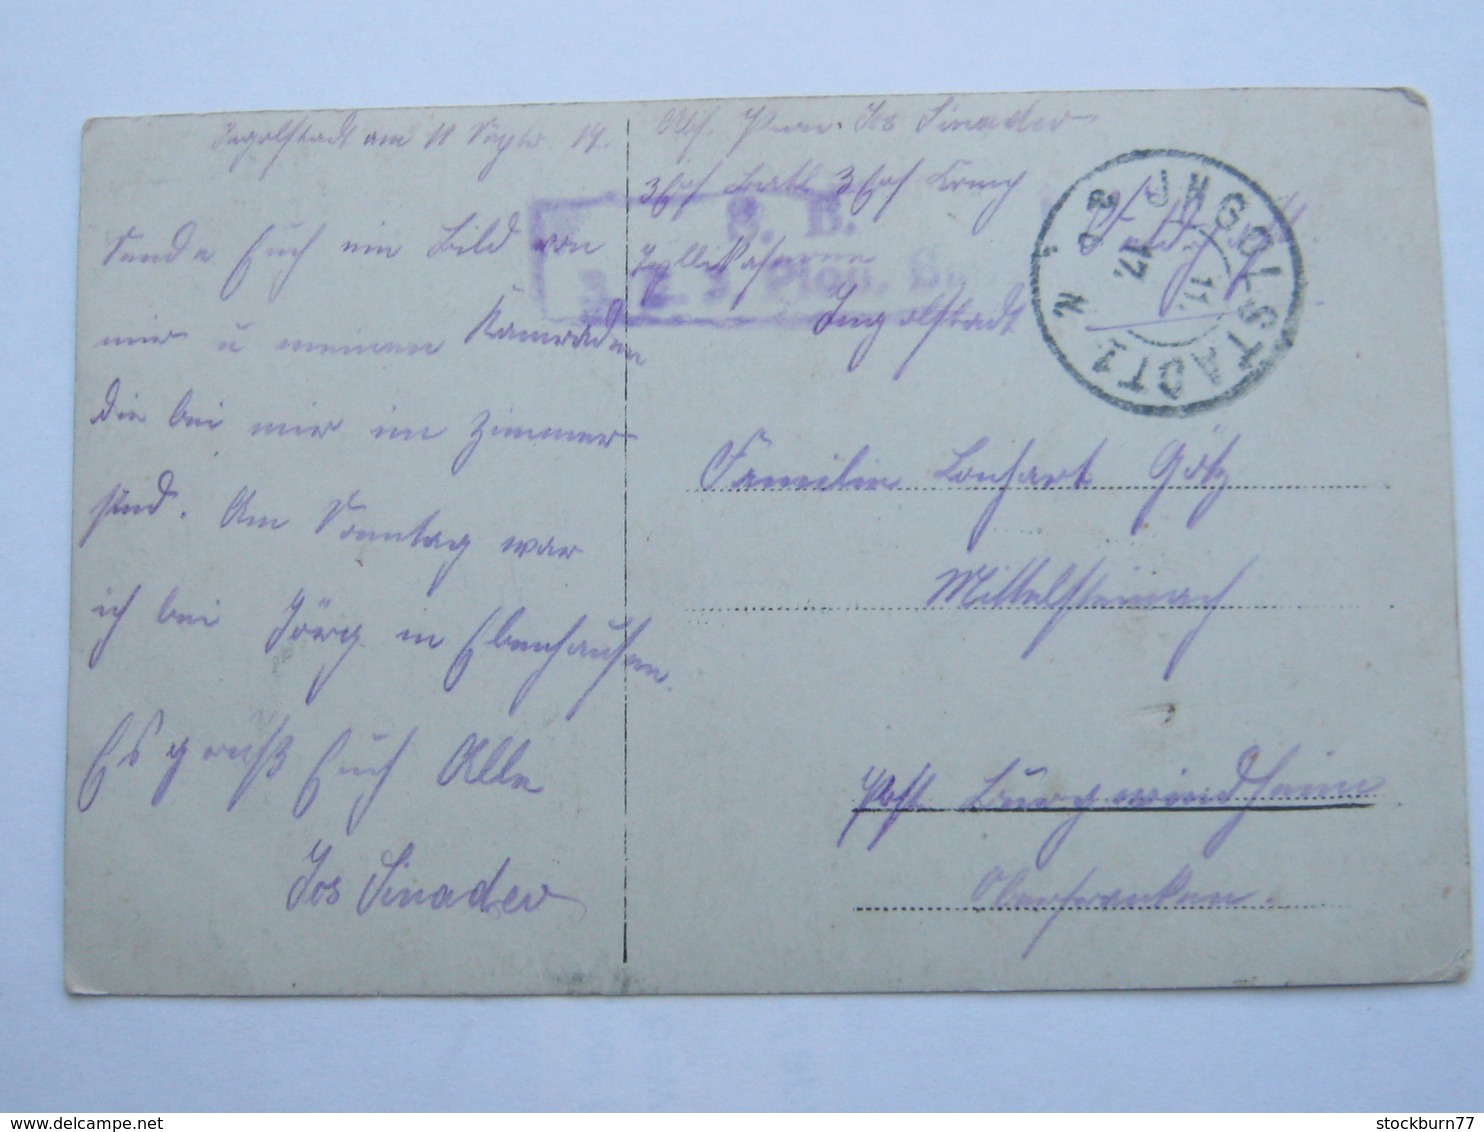 Ingolstadt am 11 Septr 17.
Sende Euch ein Bild von
mir u meinen Kameraden
die bei mir im Zimmer
sind. Am Sonntag war
ich bei Jörg in Ebenhausen.
Es grüßt Euch Alle
Jos Sinader
Abs. Pion. Jos Sinader
3 Ers Batl 3 Ers Komp
Tyllikaserne
Ingolstadt
S. B.
Pion.
INGOLSTADT 1
11. 17.
Familie Lonhart Götz
Mittelsteinach
Post Burgwindheim
Oberfranken.
stockburn77